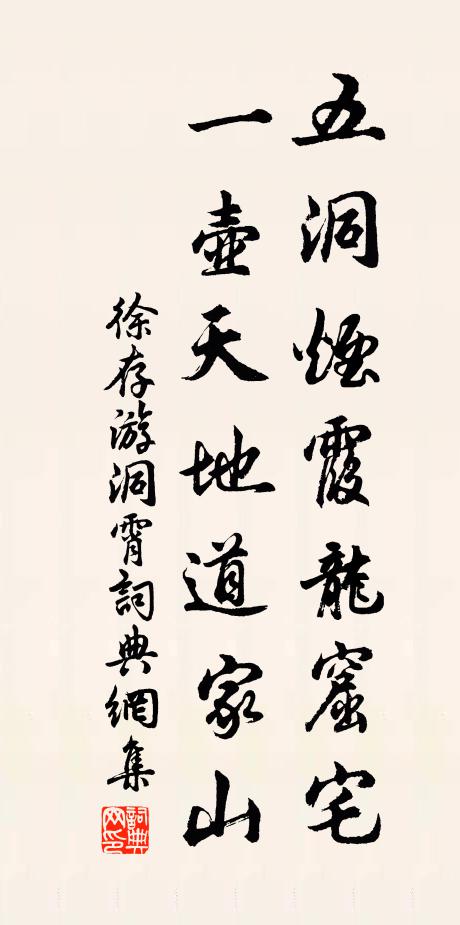 五洞煙霞龍窟宅
一壺天地道家山
徐存游洞霄詞典網集
詞典网印